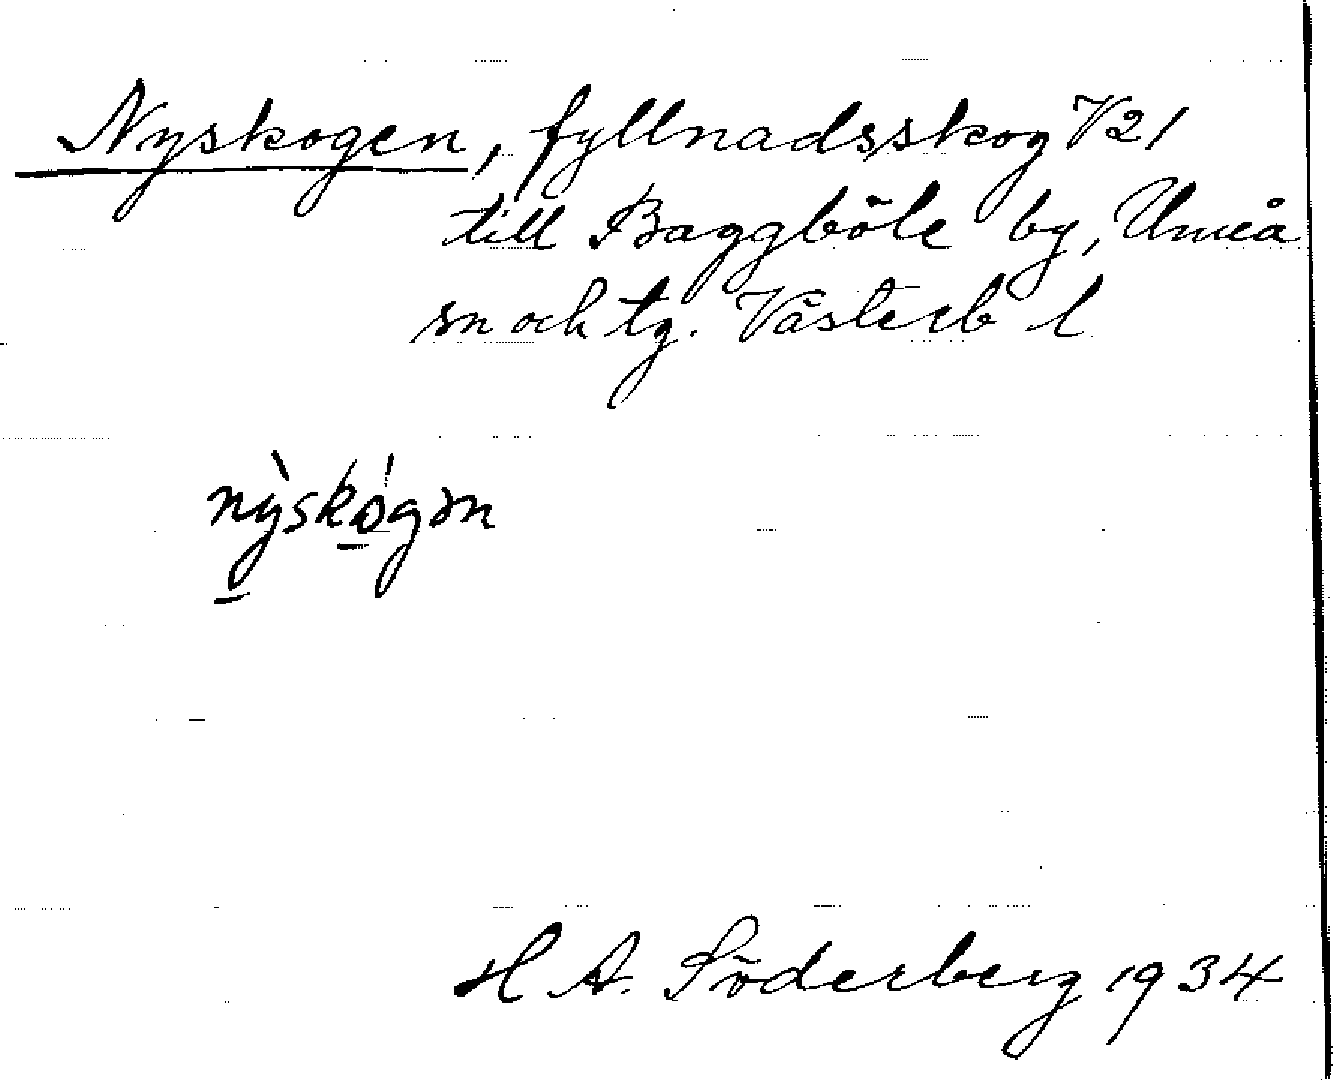 Nyskogen, fyllnadsskog V21
till Baggböle by, Umeå
sn och tg. Västerb l
nỳskó̱gən
H A. Söderberg 1934